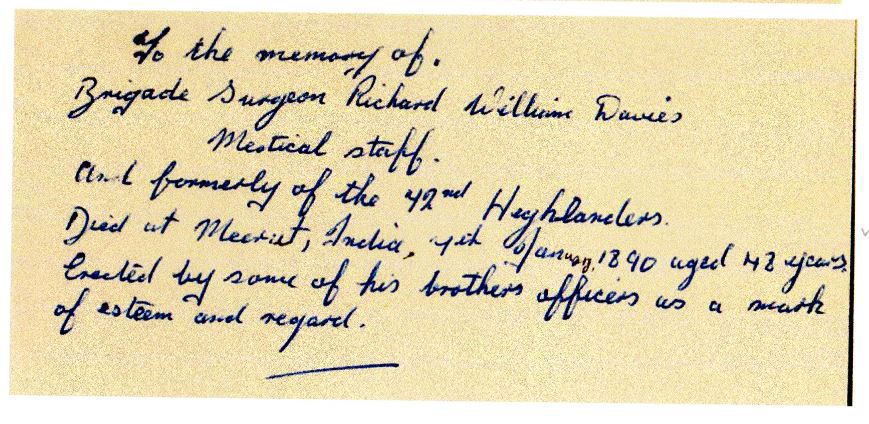 To the memory of.
Brigade Surgeon Richard William Davies
Medical staff.
And formerly of the 42nd Heghlanders.
Died at Meerut, India, 4th January, 1890 aged 48 years.
Erected by some of his brothers officers as a mark
of esteem and regard.